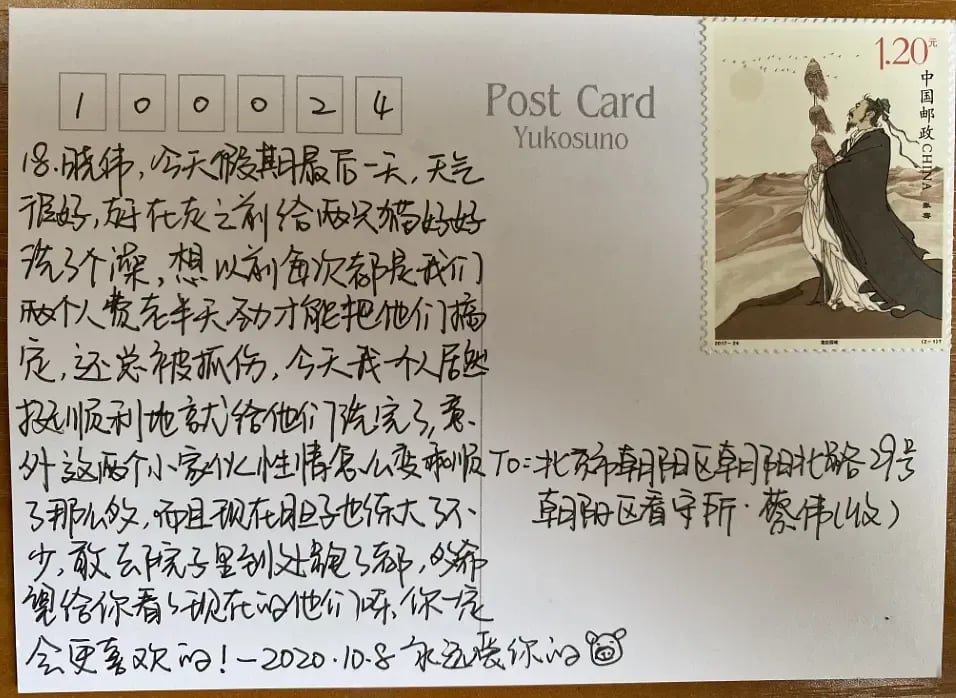 100024
Post Card
Yukosuno
1.20元
中国邮政
CHINA
18.晓伟,今天假期最后一天,天气
很好,好在走之前给两只猫好好
洗了个澡,想以前每次都是我们
两个人费老半天劲才能把他们搞
定,还总被抓伤,今天我一个人居然
挺顺利地就给他们洗完了,意
外这两个小家伙性情怎么变乖顺
了那么多,而且现在胆子也练大了不
少,敢去院子里到处跑了都,多希
望给你看看现在的他们呀,你一定
会更喜欢的!—2020.10.8 永远爱你的
To:北京市朝阳区朝阳北路29号
朝阳区看守所·蔡伟(收)
2017-24
(2-1)T